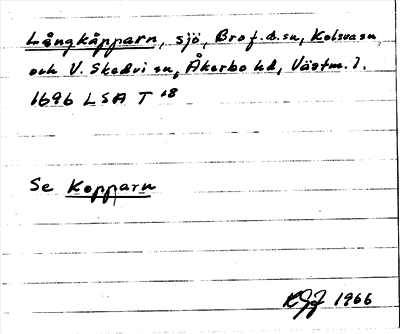 Långkåpparn, sjö, Bro f.d. sn, Kolsva sn
och V. Skedvi sn, Åkerbo hd, Västm. l.
1696 LSA T 18
Se Kopparn
1966